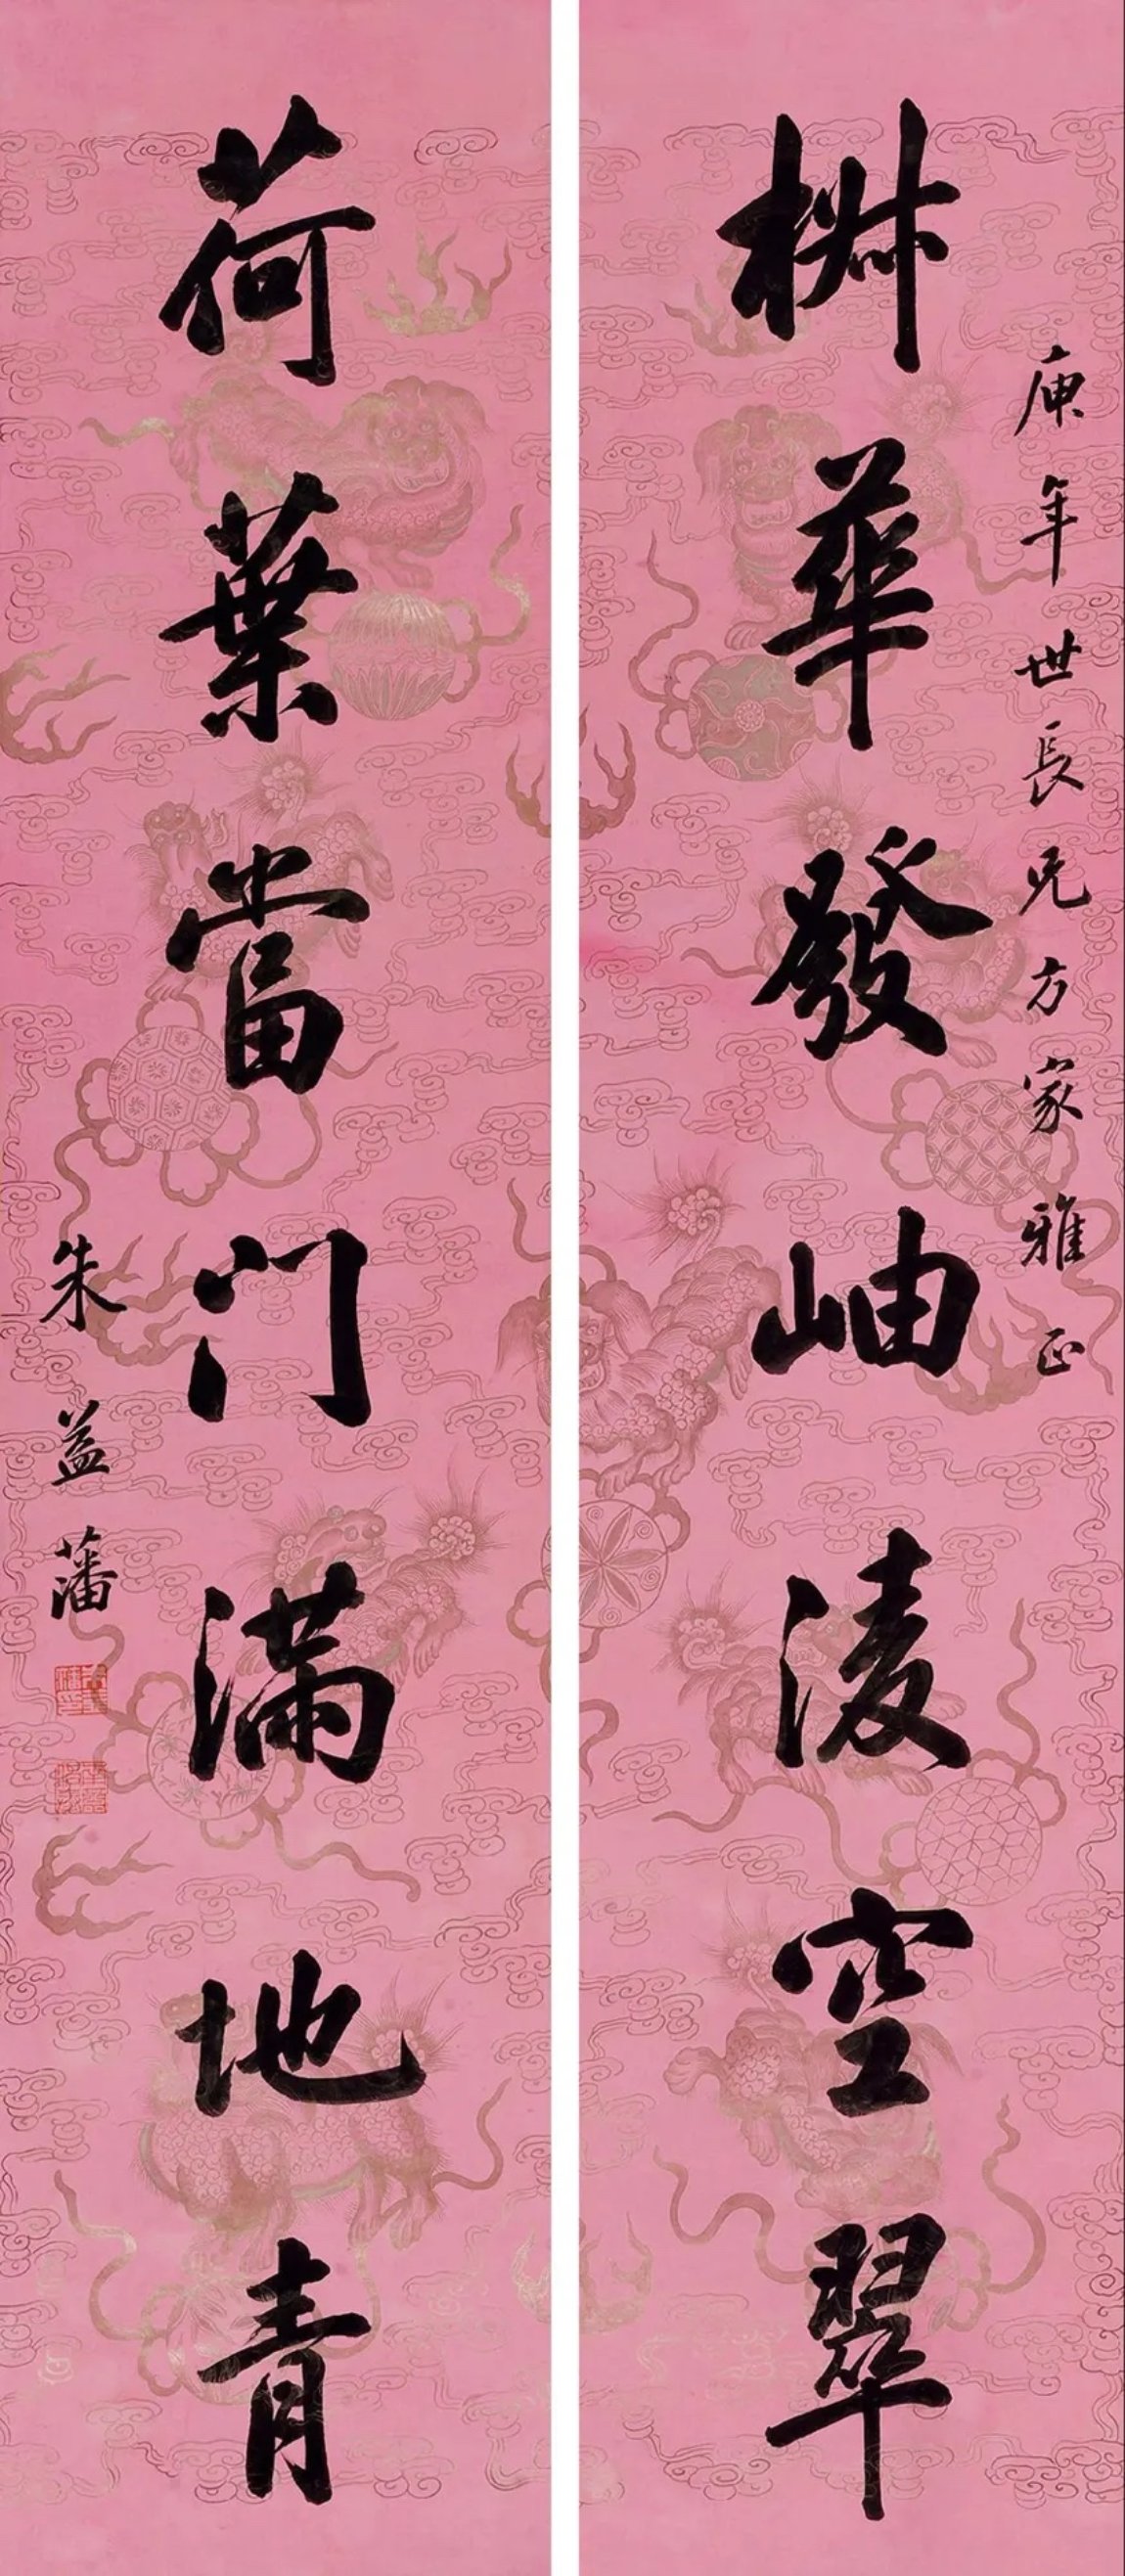 庚年世長兄方家雅正
椒華發岫淩空翠
荷葉當门滿地青
朱益藩